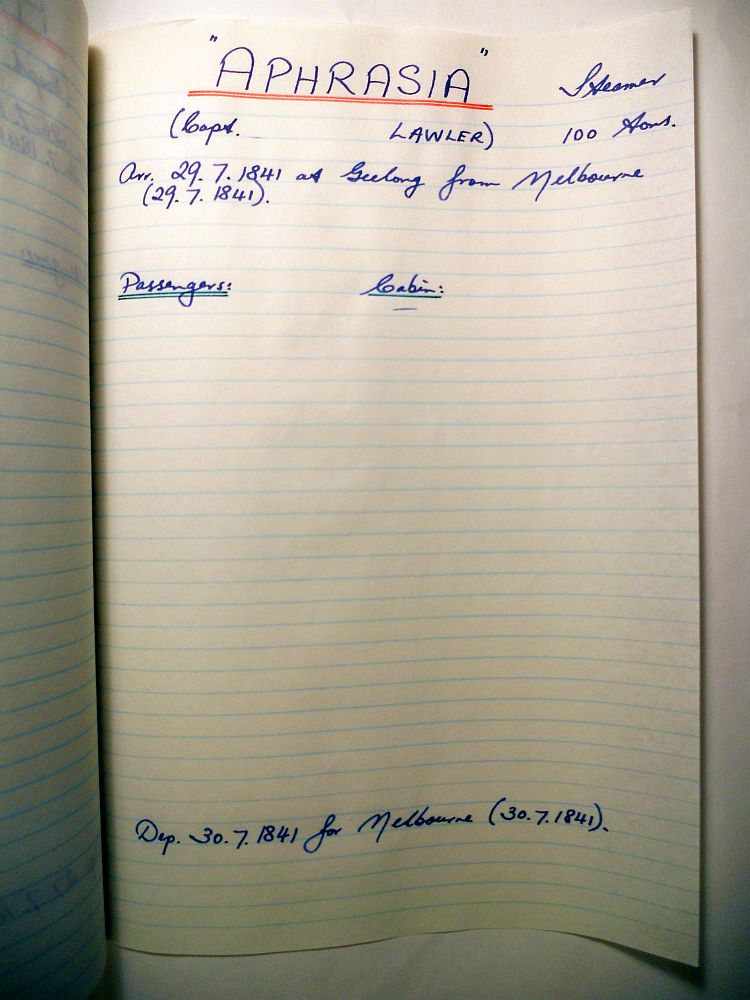 "APHRASIA" Steamer
(Capt. LAWLER) 100 Tons.
Arr. 29.7.1841 at Geelong from Melbourne
(29.7.1841).
Passengers: Cabin:
Dep. 30.7.1841 for Melbourne (30.7.1841).